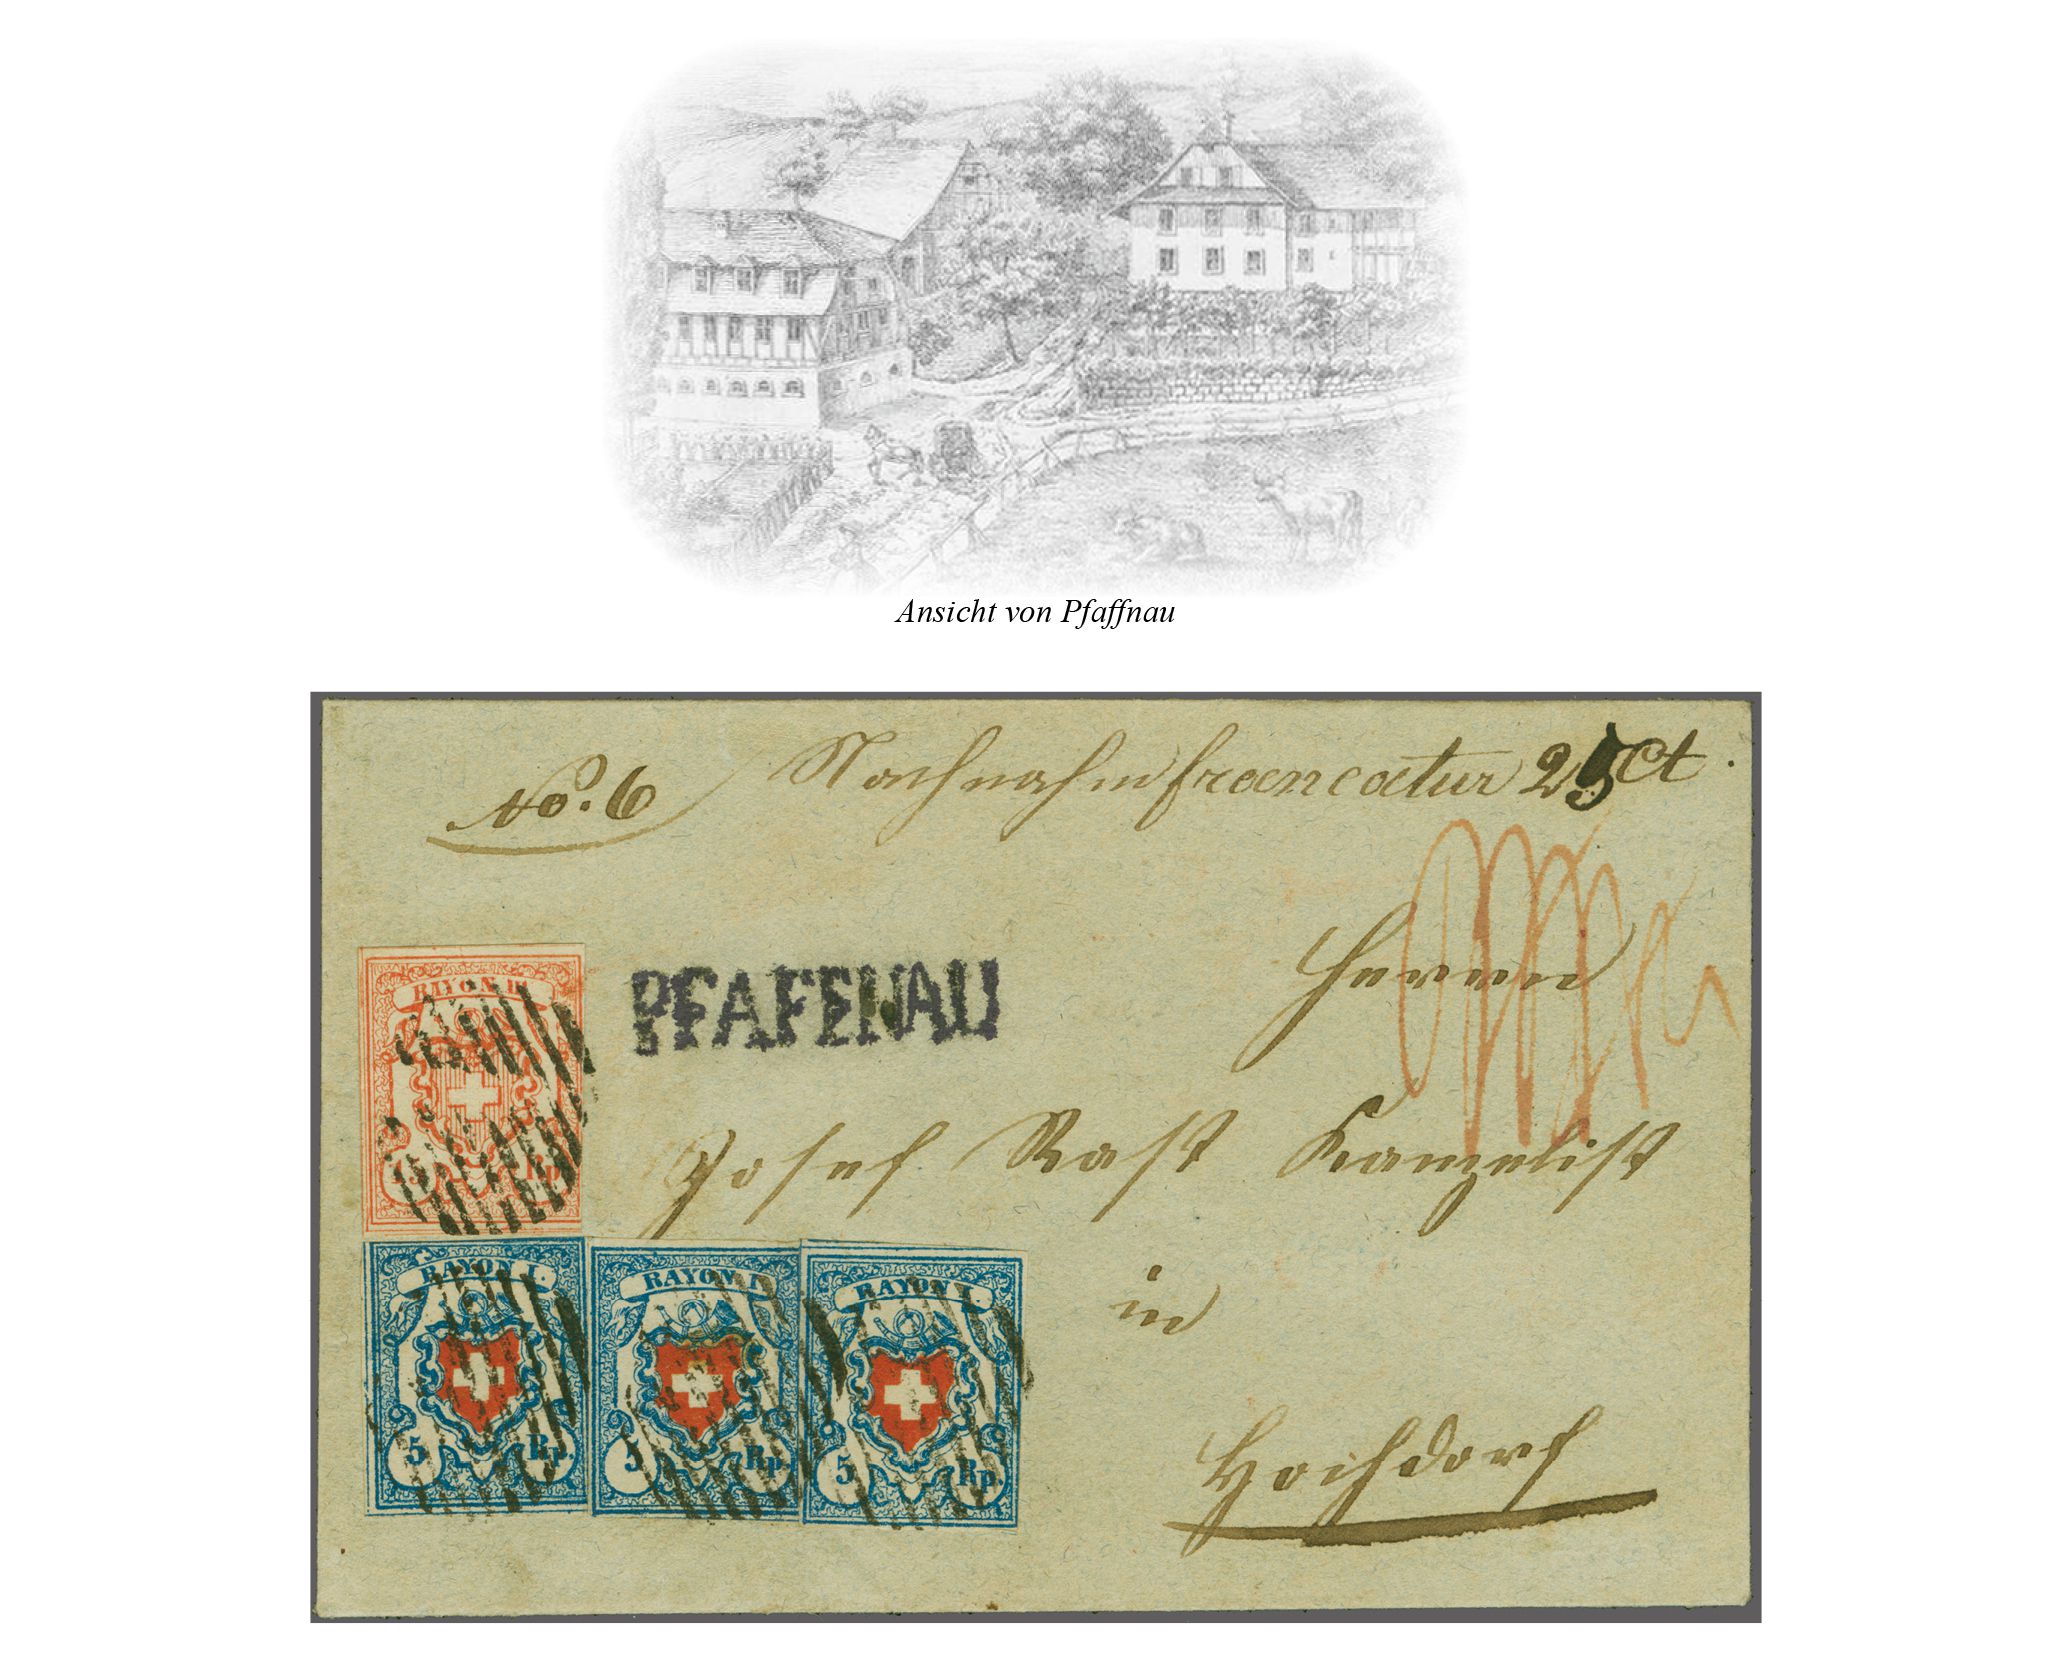 Ansicht von Pfaffnau
No. 6 Nachnahmfrancatur 25 Ct.
PFAFFNAU
Herrn
Josef Rast Kanzelist
in
Hochdorf
RAYON III
15 Rp.
RAYON I. RAYON I. RAYON I.
5 Rp. 5 Rp. 5 Rp.